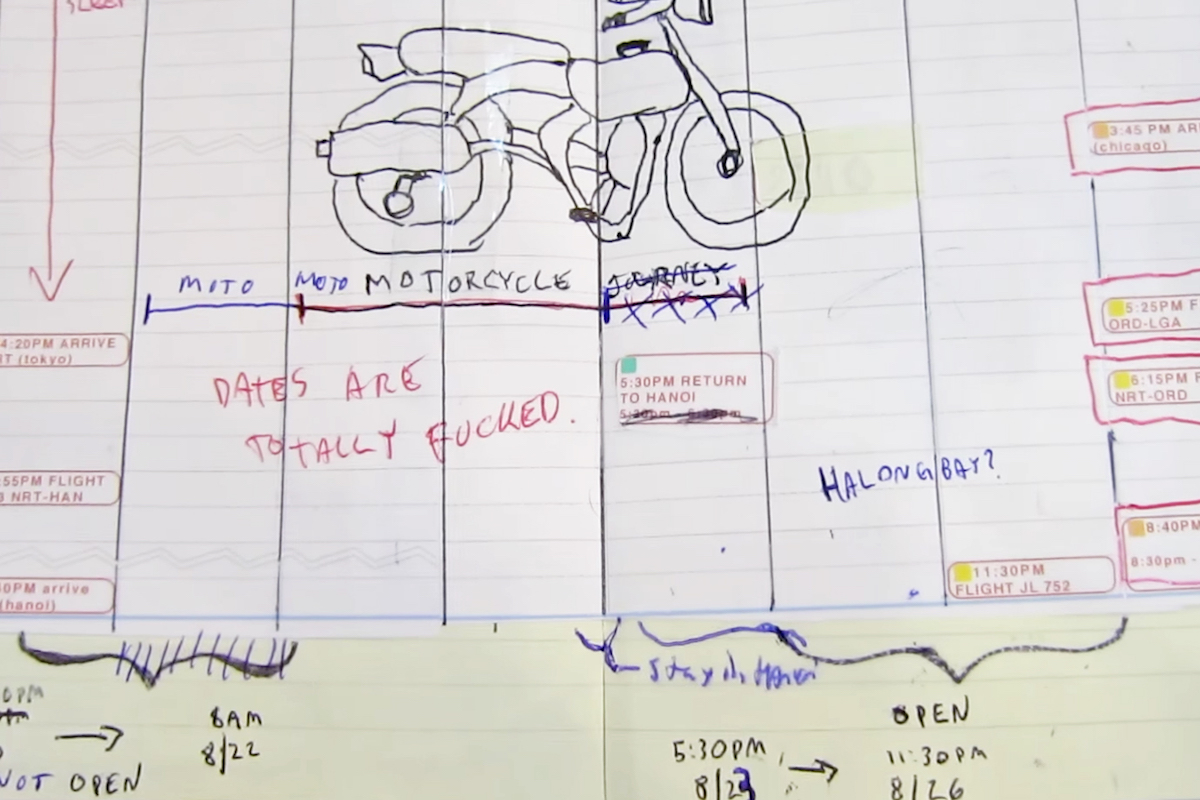 SLEEP
3:45 PM AR
(chicago)
MOTO MOTO MOTORCYCLE JOURNEY
5:25PM F
ORD-LGA
4:20PM ARRIVE
T (tokyo)
5:30PM RETURN
TO HANOI
5:30pm - 6:30pm
6:15PM F
NRT-ORD
DATES ARE
TOTALLY FUCKED.
HALONG BAY?
:55PM FLIGHT
NRT-HAN
8:40PM
8:30pm -
11:30PM
FLIGHT JL 752
0PM arrive
(hanoi)
Stay in Hanoi
8AM
8/22
NOT OPEN
OPEN
5:30PM → 11:30PM
8/23 8/26